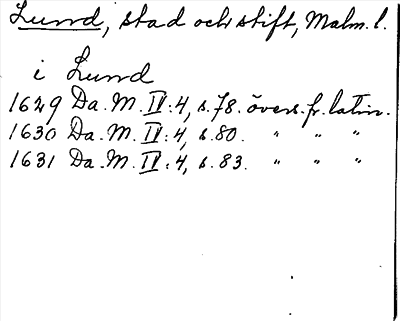 Lund, stad och stift, Malm. l.
i Lund
1629 Da. M. IV:4, s. 78. övers. fr. latin.
1630 Da. M. IV:4, s. 80. " " "
1631 Da. M. IV:4, s. 83. " " "